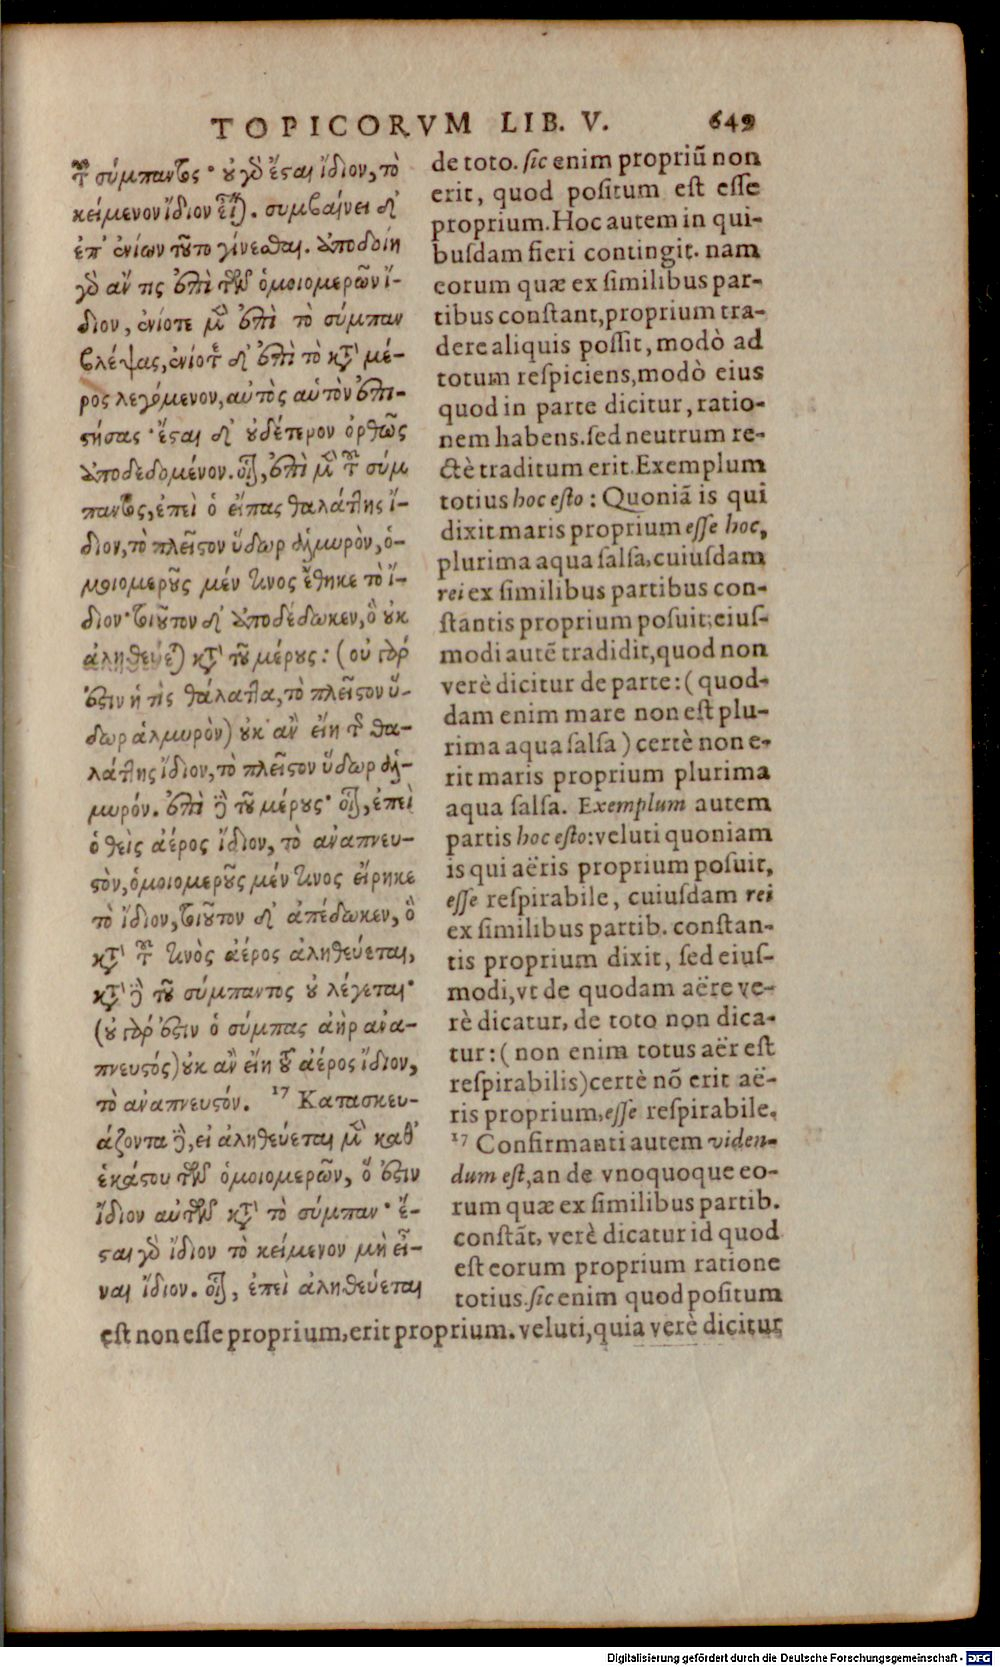 TOPICORVM LIB. V. 649
τοῦ σύμπαντος· οὐ γὰρ ἔσται ἴδιον, τὸ
κείμενον ἴδιον εἶναι. συμβαίνει δ'
ἐπ' ἐνίων τοῦτο γίνεσθαι. ἀποδοίη
γὰρ ἄν τις ἐπὶ τῶν ὁμοιομερῶν ἴ-
διον, ἐνίοτε μὲν ἐπὶ τὸ σύμπαν
βλέψας, ἐνίοτε δ' ἐπὶ τὸ κατὰ μέ-
ρος λεγόμενον, αὐτὸς αὑτὸν ἐπι-
στήσας· ἔσται δ' οὐδέτερον ὀρθῶς
ἀποδεδομένον. οἷον, ἐπὶ μὲν τοῦ σύμ
παντος, ἐπεὶ ὁ εἴπας θαλάττης ἴ-
διον, τὸ πλεῖστον ὕδωρ ἁλμυρὸν, ὁ-
μοιομεροῦς μέν τινος ἔθηκε τὸ ἴ-
διον· τοιοῦτον δ' ἀποδέδωκεν, ὃ οὐκ
ἀληθεύεται κατὰ τοῦ μέρους: (οὐ γάρ
ἐστιν ἡ τὶς θάλαττα, τὸ πλεῖστον ὕ-
δωρ ἁλμυρὸν) οὐκ ἂν εἴη τῆς θα-
λάττης ἴδιον, τὸ πλεῖστον ὕδωρ ἁλ-
μυρόν. ἐπὶ δὲ τοῦ μέρους· οἷον, ἐπεὶ
ὁ θεὶς ἀέρος ἴδιον, τὸ ἀναπνευ-
στὸν, ὁμοιομεροῦς μέν τινος εἴρηκε
τὸ ἴδιον, τοιοῦτον δ' ἀπέδωκεν, ὃ
κατὰ τοῦ τινὸς ἀέρος ἀληθεύεται,
κατὰ δὲ τοῦ σύμπαντος οὐ λέγεται·
(οὐ γάρ ἐστιν ὁ σύμπας ἀὴρ ἀνα-
πνευστός) οὐκ ἂν εἴη τοῦ ἀέρος ἴδιον,
τὸ ἀναπνευστόν. 17 Κατασκευ-
άζοντα δὲ, εἰ ἀληθεύεται μὲν καθ'
ἑκάστου τῶν ὁμοιομερῶν, ὅ ἐστιν
ἴδιον αὐτῶν κατὰ τὸ σύμπαν· ἔ-
σται γὰρ ἴδιον τὸ κείμενον μὴ εἶ-
ναι ἴδιον. οἷον, ἐπεὶ ἀληθεύεται
de toto. sic enim propriũ non
erit, quod positum est esse
proprium. Hoc autem in qui-
busdam fieri contingit. nam
eorum quæ ex similibus par-
tibus constant, proprium tra-
dere aliquis possit, modò ad
totum respiciens, modò eius
quod in parte dicitur, ratio-
nem habens. sed neutrum re-
ctè traditum erit. Exemplum
totius hoc esto: Quoniã is qui
dixit maris proprium esse hoc,
plurima aqua salsa, cuiusdam
rei ex similibus partibus con-
stantis proprium posuit; eius-
modi autẽ tradidit, quod non
verè dicitur de parte: (quod-
dam enim mare non est plu-
rima aqua salsa) certè non e-
rit maris proprium plurima
aqua salsa. Exemplum autem
partis hoc esto: veluti quoniam
is qui aëris proprium posuit,
esse respirabile, cuiusdam rei
ex similibus partib. constan-
tis proprium dixit, sed eius-
modi, vt de quodam aëre ve-
rè dicatur, de toto non dica-
tur: (non enim totus aër est
respirabilis) certè nõ erit aë-
ris proprium, esse respirabile.
17 Confirmanti autem viden-
dum est, an de vnoquoque eo-
rum quæ ex similibus partib.
constãt, verè dicatur id quod
est eorum proprium ratione
totius. sic enim quod positum
est non esse proprium, erit proprium. veluti, quia verè dicitur
Digitalisierung gefördert durch die Deutsche Forschungsgemeinschaft - DFG